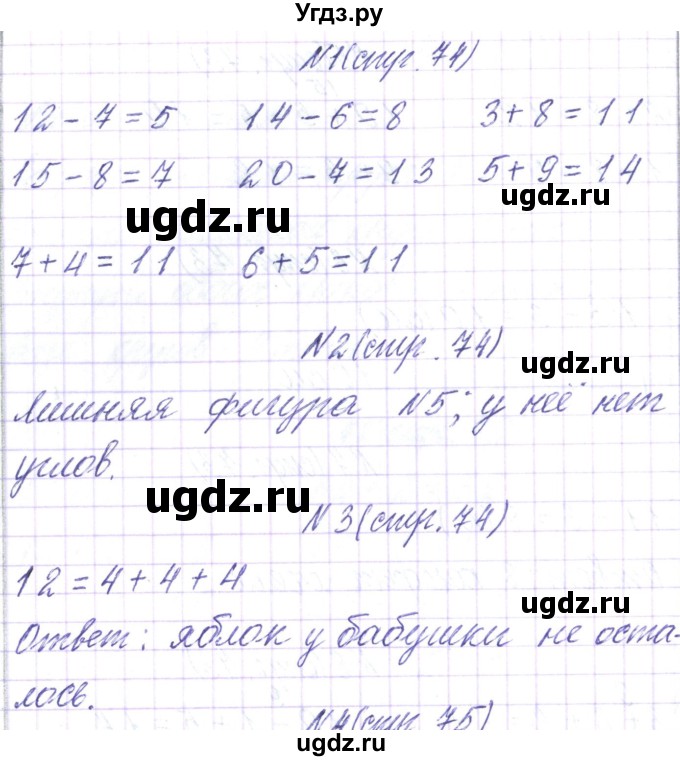 Угдз.ру
N1(стр. 74)
12-7=5 14-6=8 3+8=11
15-8=7 20-7=13 5+9=14
ugdz.ru
ugdz.ru
7+4=11 6+5=11
N2(стр. 74)
ugdz.ru
Лишняя фигура N5; у неё нет
углов.
ugdz.ru
N3(стр. 74)
12=4+4+4
ugdz.ru
Ответ: яблок у бабушки не оста-
лось.
N4(стр. 75)
ugdz.ru